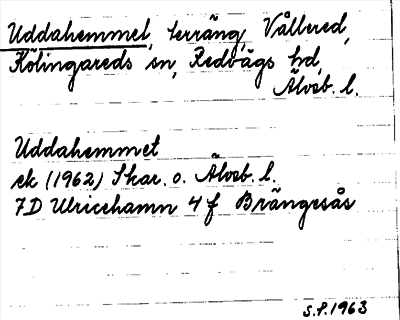 Uddahemmet, terräng, Vållered,
Kölingareds sn, Redvägs hd,
Älvsb. l.
Uddahemmet
ek (1962) Skar. o. Älvsb. l.
7D Ulricehamn 4 f Brängesås
S.P. 1963